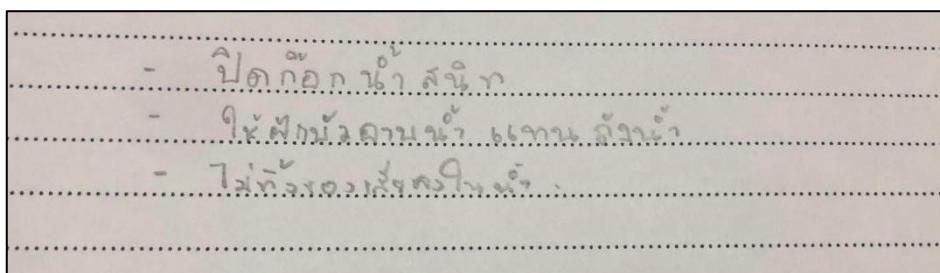 - ปิดก๊อกน้ำสนิท
- ใช้ฝักบัวอาบน้ำ แทน ถังน้ำ
- ไม่ทิ้งของเสียลงในน้ำ.